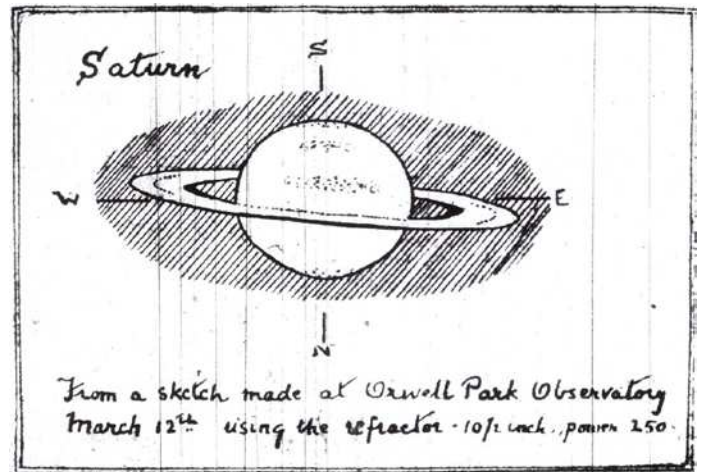 Saturn
S
W
E
N
From a sketch made at Orwell Park Observatory
March 12th using the refractor - 10½ inch, power 250.